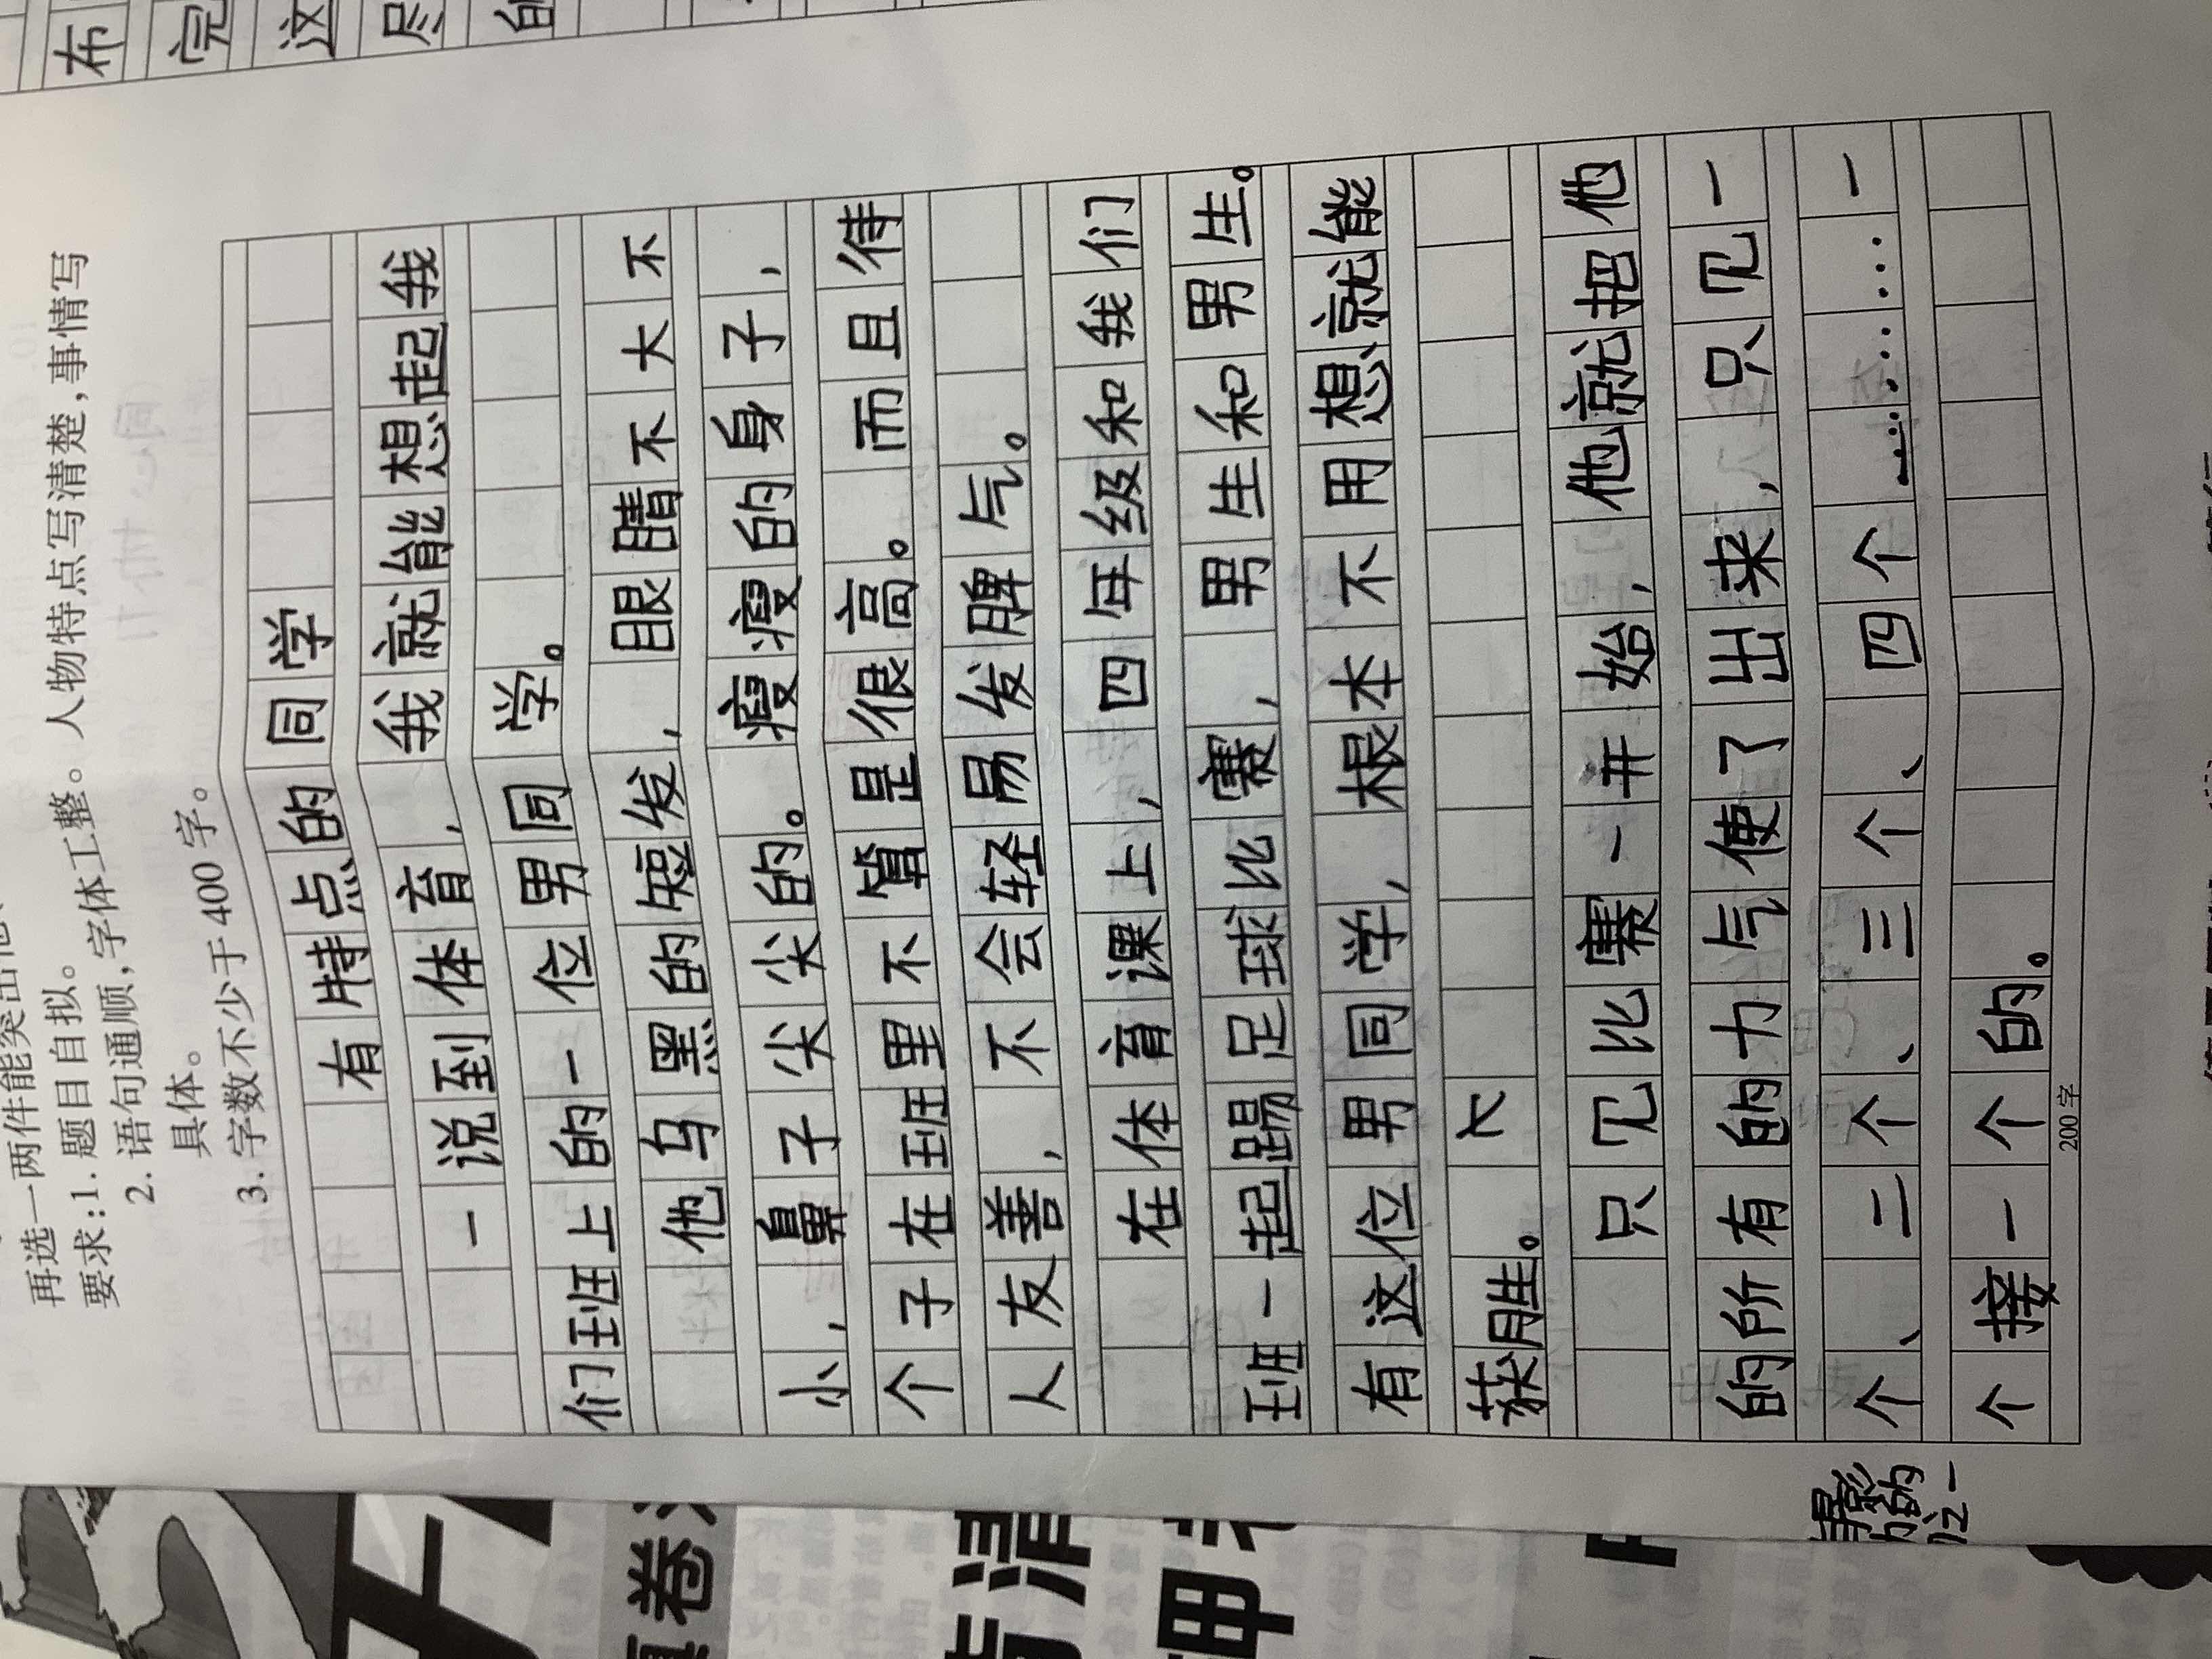 再选一两件能突出他
要求:1. 题目自拟。
2. 语句通顺,字体工整。人物特点写清楚,事情写
具体。
3. 字数不少于 400 字。
有特点的同学
一说到体育,我就能想起我
们班上的一位男同学。
他乌黑的短发,眼睛不大不
小,鼻子尖尖的。瘦瘦的身子,
个子在班里不管是很高。而且待
人友善,不会轻易发脾气。
在体育课上,四年级和我们
班一起踢足球比赛,男生和男生。
有这位男同学,根本不用想就能
获胜。
只见比赛一开始,他就把他
的所有的力气使了出来,只见一
个、二个、三个、四个……一
个接一个的。
200字
布
完
这
尽
的
卷